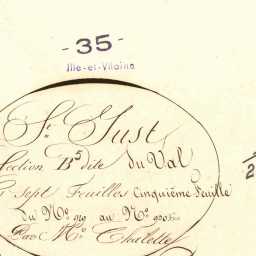 - 35 -
Ille-et-Vilaine
St. Just
Section B5 dite du Val
Sept Feuilles Cinquième Feuille
du No. 919 au No.
Par Mr. Charlotte